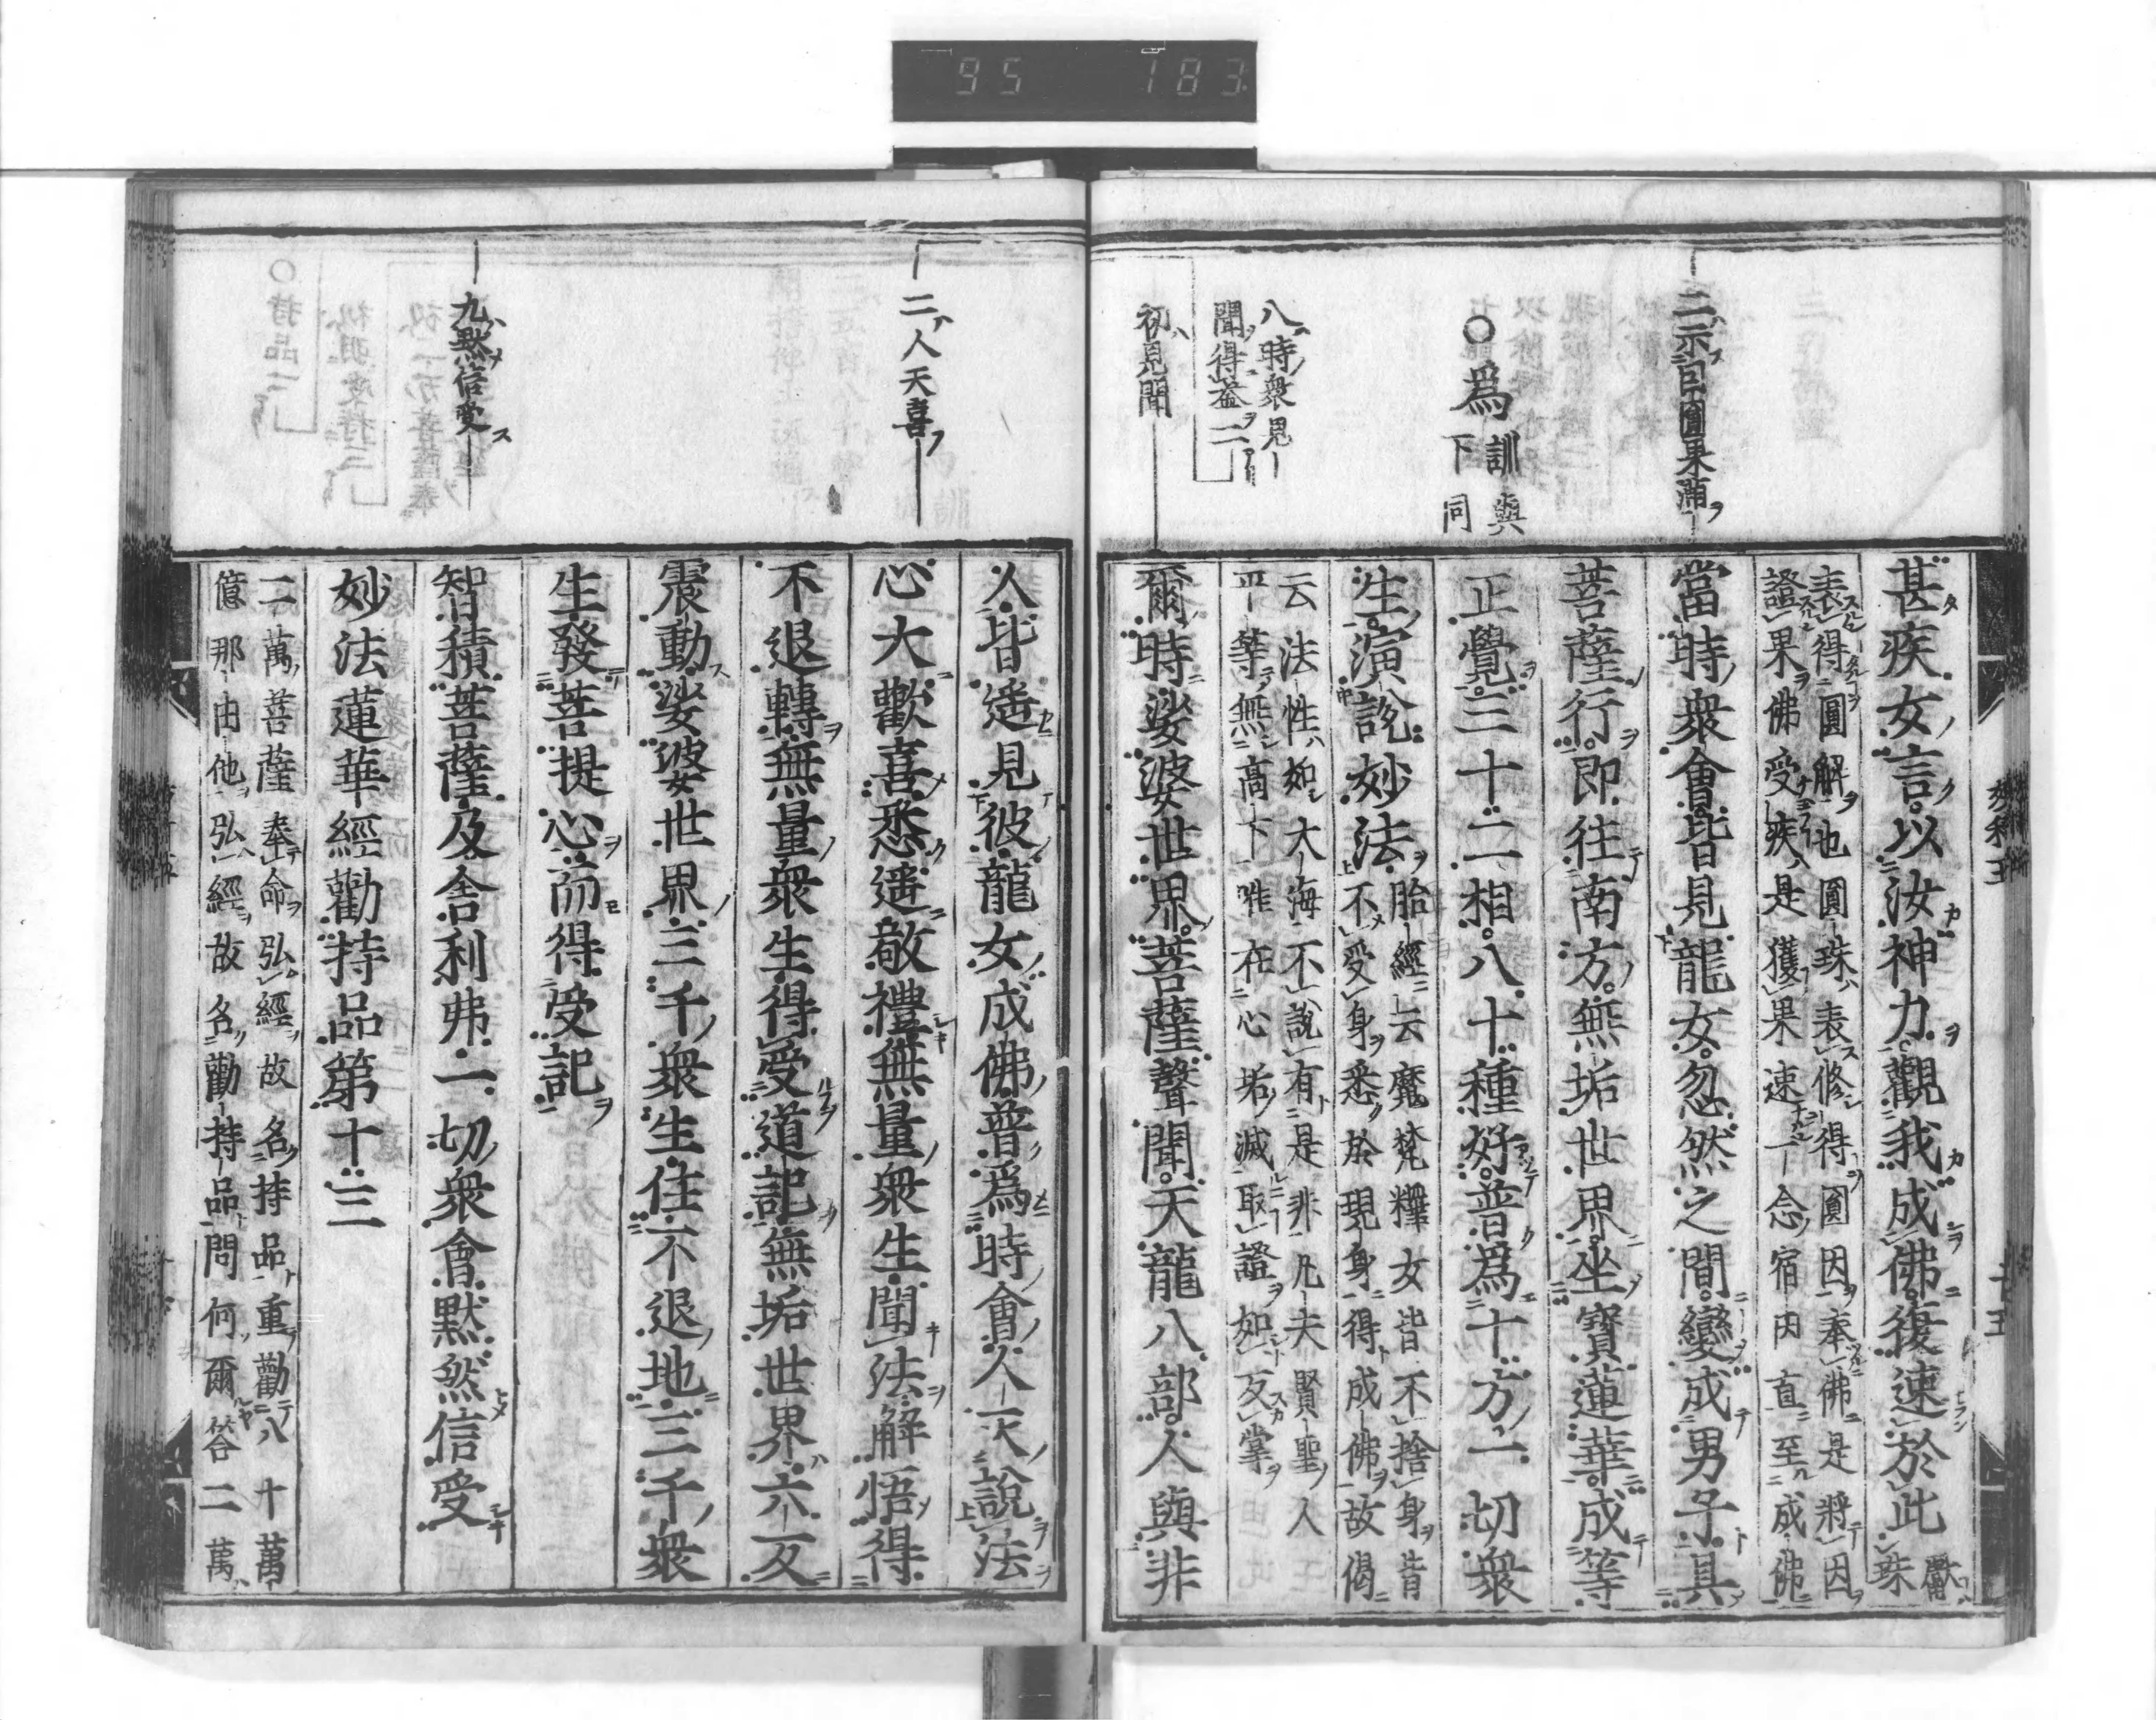 95 183
二示因圓果滿
○爲訓與下同
八時衆見
聞得益二
初見聞
甚疾女言以汝神力觀我成佛復速於此獻珠
表得圓解也圓珠表修得圓因奉佛是將因
證果佛受疾是獲果速一念宿因直至成佛
當時衆會皆見龍女忽然之間變成男子具
菩薩行即往南方無垢世界坐寶蓮華成等
正覺三十二相八十種好普爲十方一切衆
生演說妙法胎經云魔梵釋女皆不捨身皆
不受身悉於現身得成佛故偈
云法性如大海不說有是非凡夫賢聖人
平等無高下唯在心垢滅取證如反掌
爾時娑婆世界菩薩聲聞天龍八部人與非
二人天喜
九默信受
人皆遙見彼龍女成佛普爲時會人天說法
心大歡喜悉遙敬禮無量衆生聞法解悟得
不退轉無量衆生得受道記無垢世界六反
震動娑婆世界三千衆生住不退地三千衆
生發菩提心而得受記
智積菩薩及舍利弗一切衆會默然信受
妙法蓮華經勸持品第十三
二萬菩薩奉命弘經故名持品重勸八十萬
億那由他弘經故名勸持品問何爾答二萬